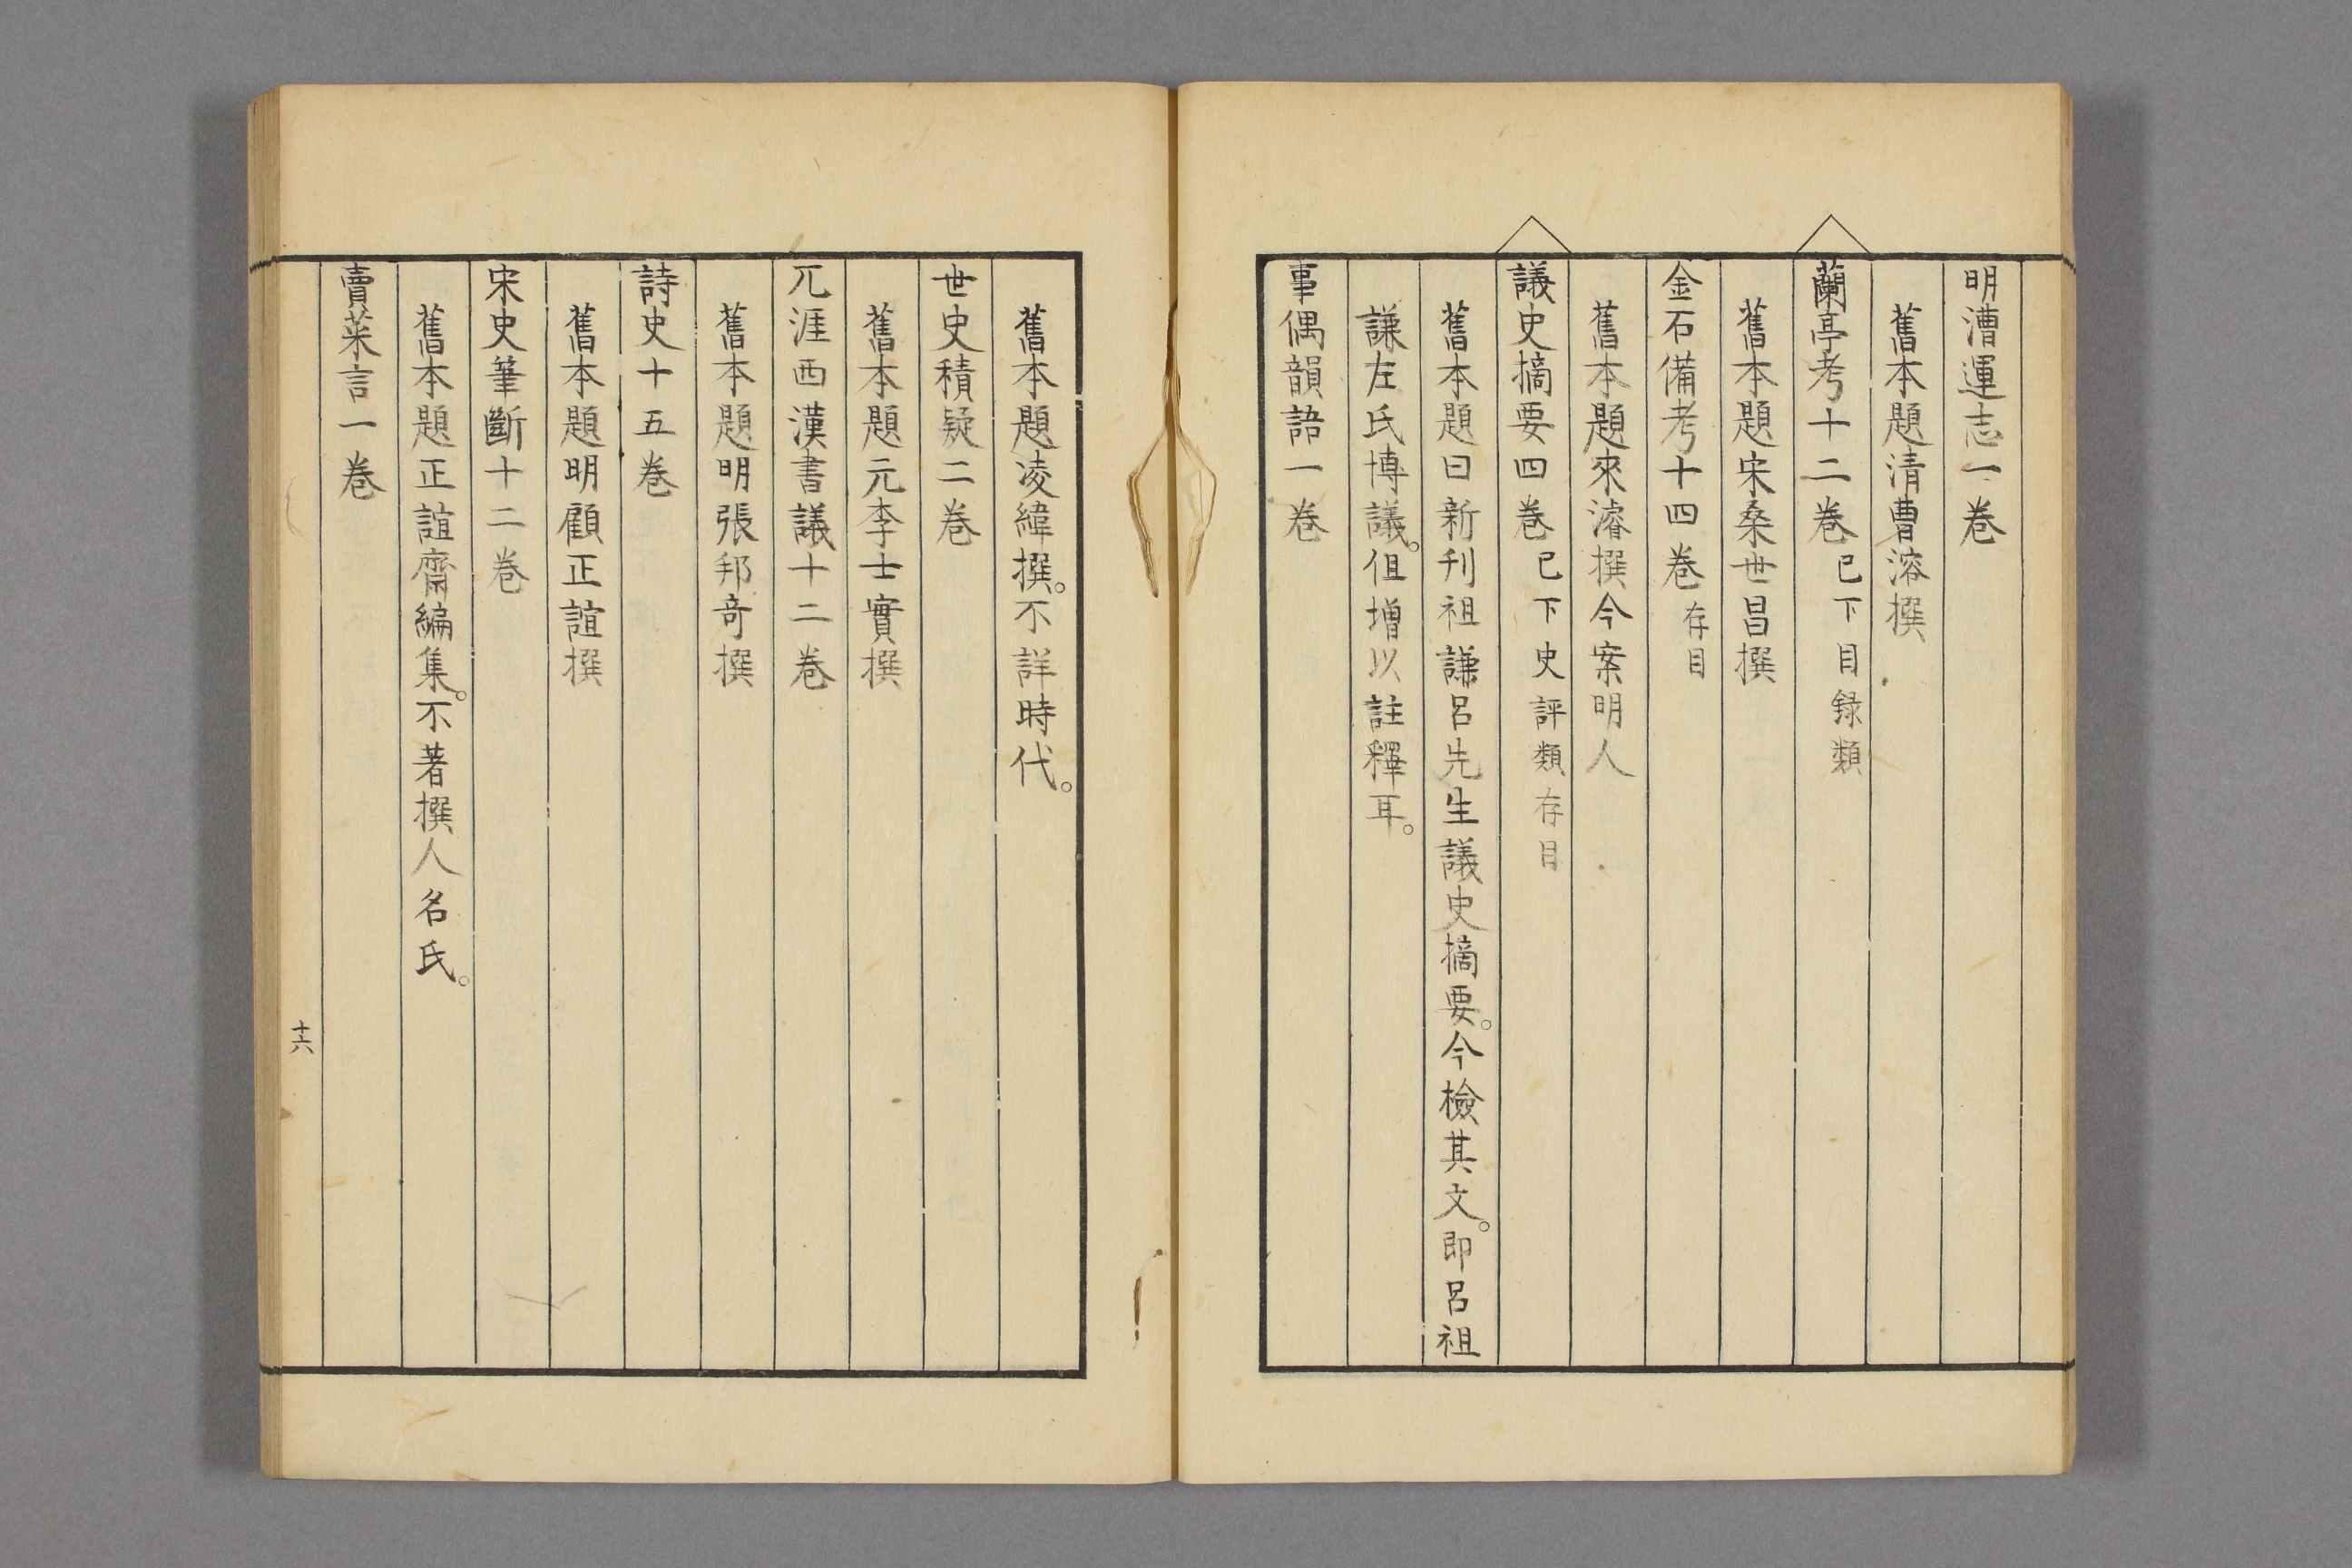 明漕運志一卷
舊本題清曹溶撰
蘭亭考十二卷已下目録類
舊本題宋桑世昌撰
金石備考十四卷存目
舊本題來濬撰今案明人
議史摘要四卷已下史評類存目
舊本題曰新刋祖謙呂先生議史摘要。今檢其文。即呂祖
謙左氏博議。但增以註釋耳。
事偶韻語一卷
舊本題凌緯撰。不詳時代。
世史積疑二卷
舊本題元李士實撰
兀涯西漢書議十二卷
舊本題明張邦奇撰
詩史十五卷
舊本題明顧正誼撰
宋史筆斷十二卷
舊本題正誼齋編集。不著撰人名氏。
賣菜言一卷
十六